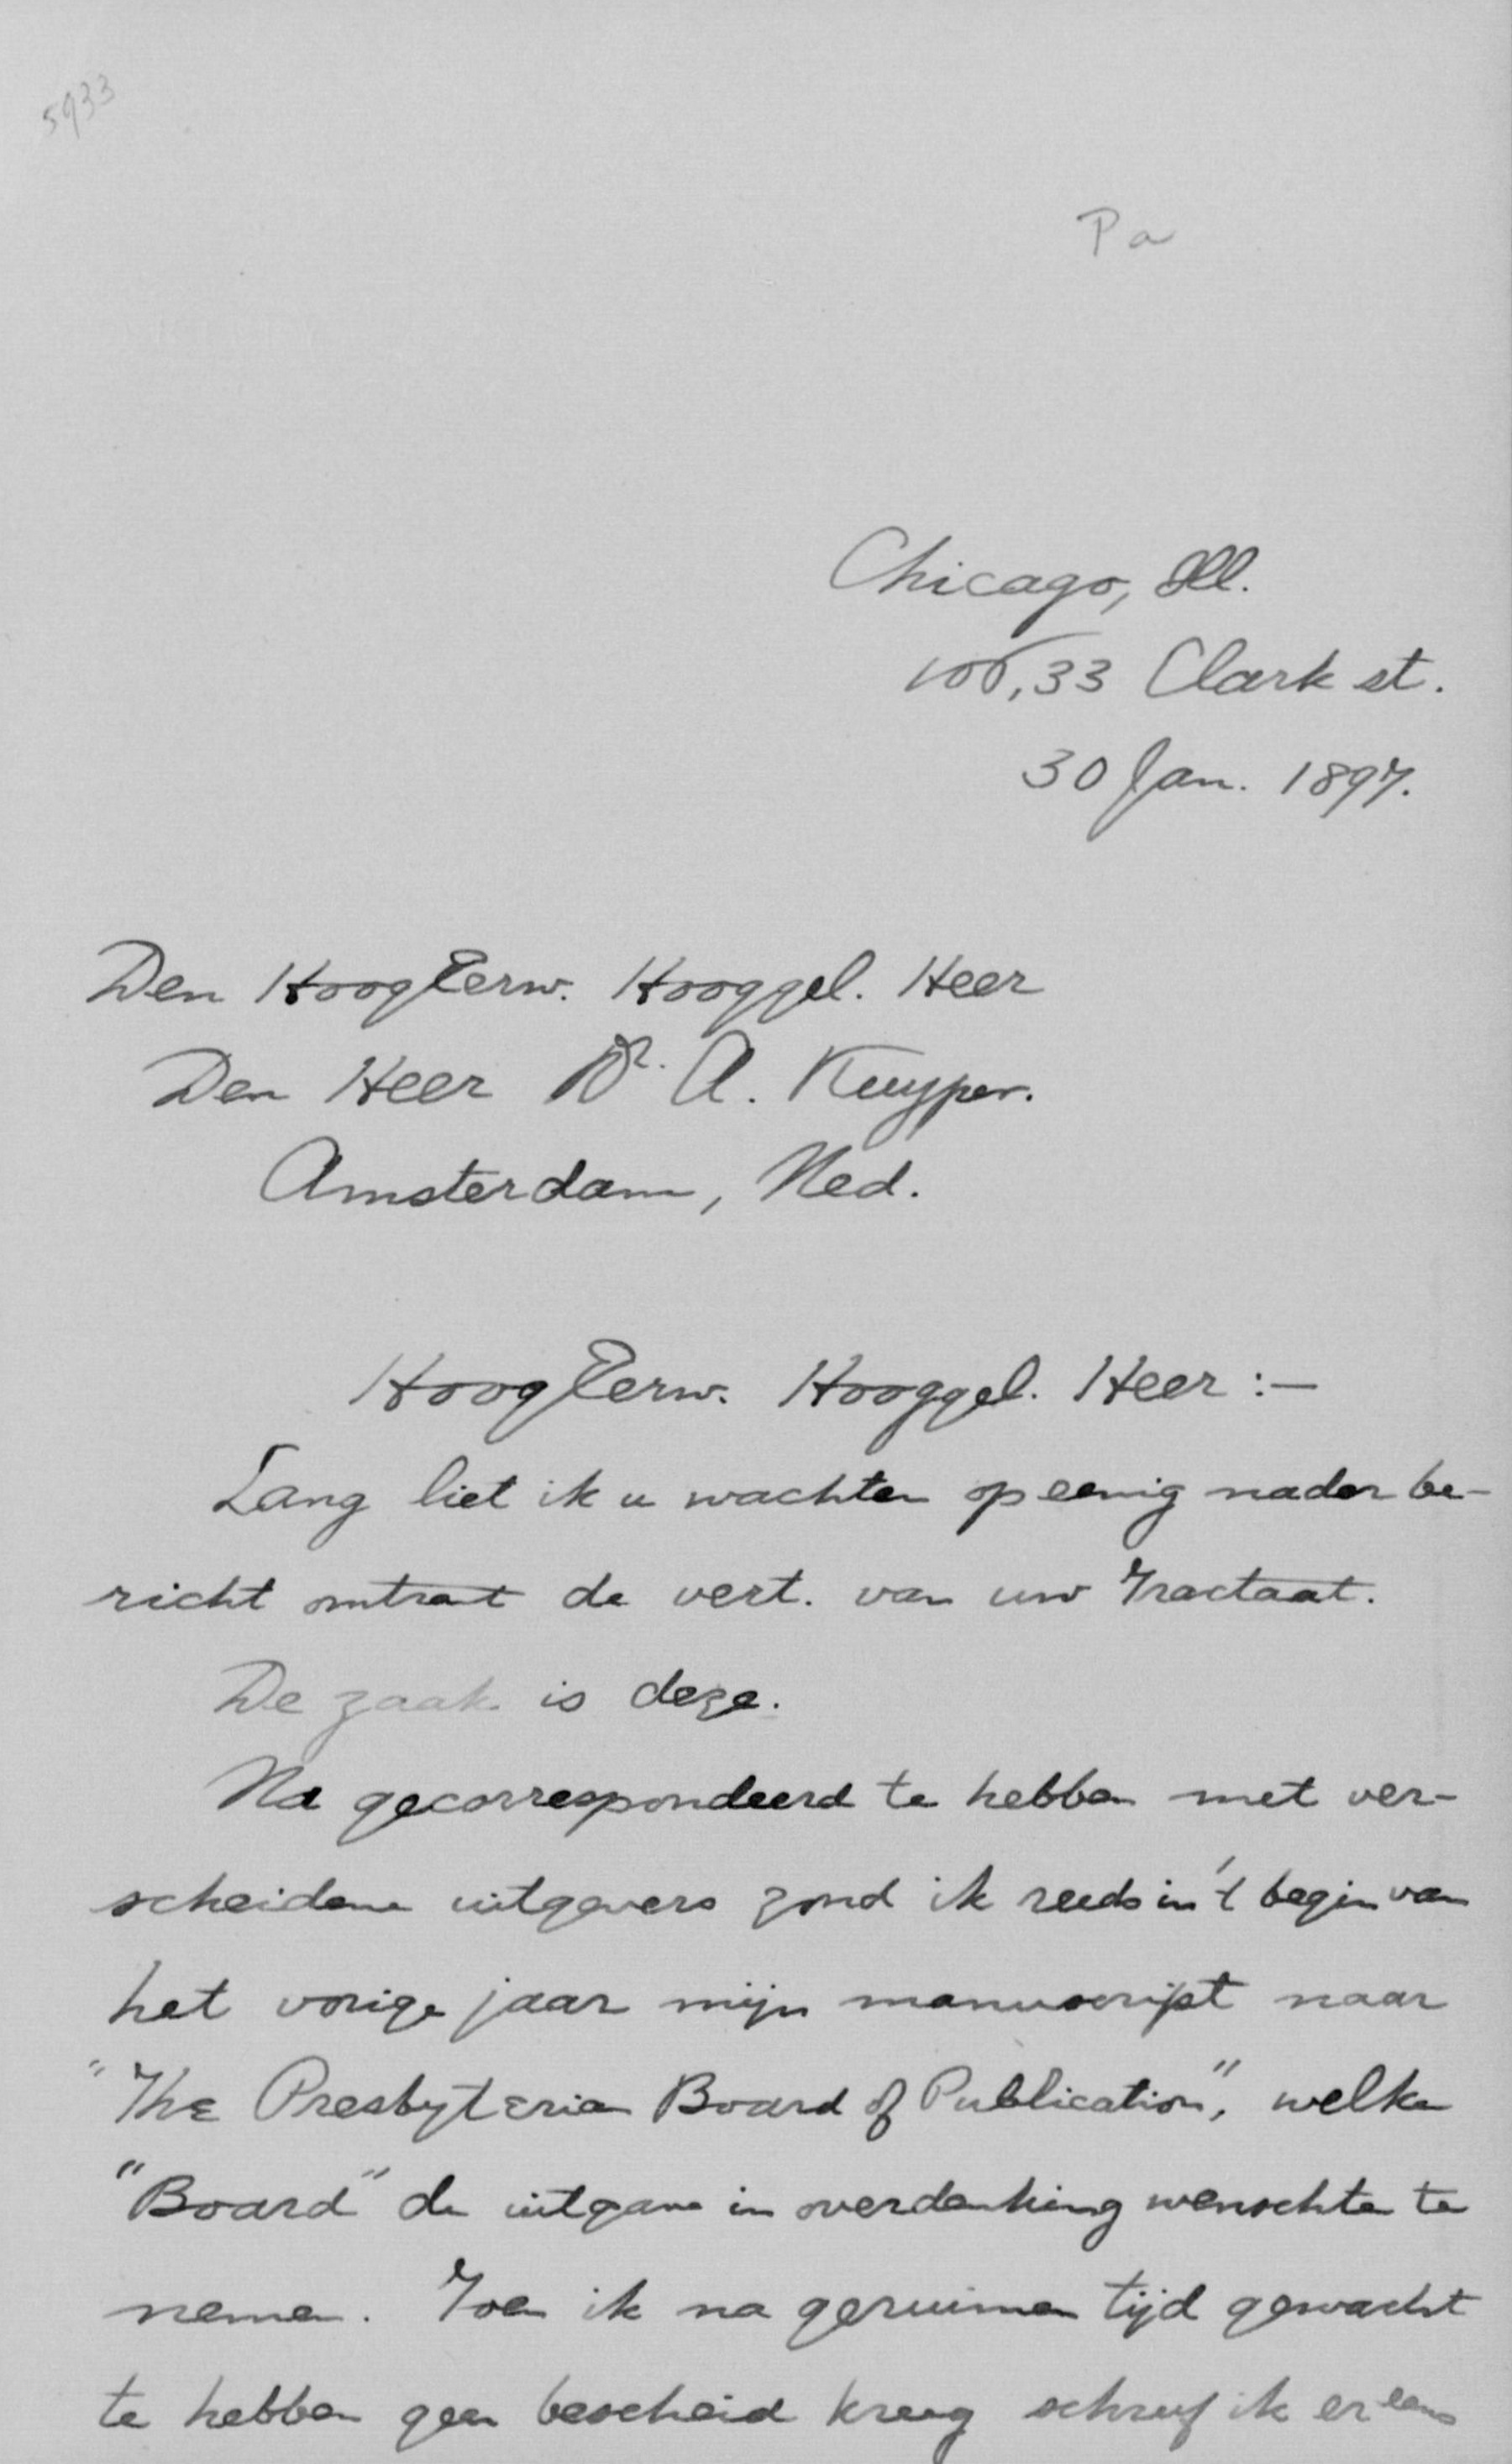 5933
Pa
Chicago, Ill.
100,33 Clark st.
30 Jan. 1897.
Den HoogEerw. Hooggel. Heer
Den Heer Dr. A. Kuyper.
Amsterdam, Ned.
HoogEerw. Hooggel. Heer :—
Lang liet ik u wachten op eenig nader be-
richt omtrent de vert. van uw Tractaat.
De zaak is deze.
Na gecorrespondeerd te hebben met ver-
scheidene uitgevers zond ik reeds in 't begin van
het vorige jaar mijn manuscript naar
"The Presbyterian Board of Publication", welke
"Board" de uitgave in overdenking wenschte te
nemen. Toen ik na geruimen tijd gewacht
te hebben geen bescheid kreeg schreef ik er eens